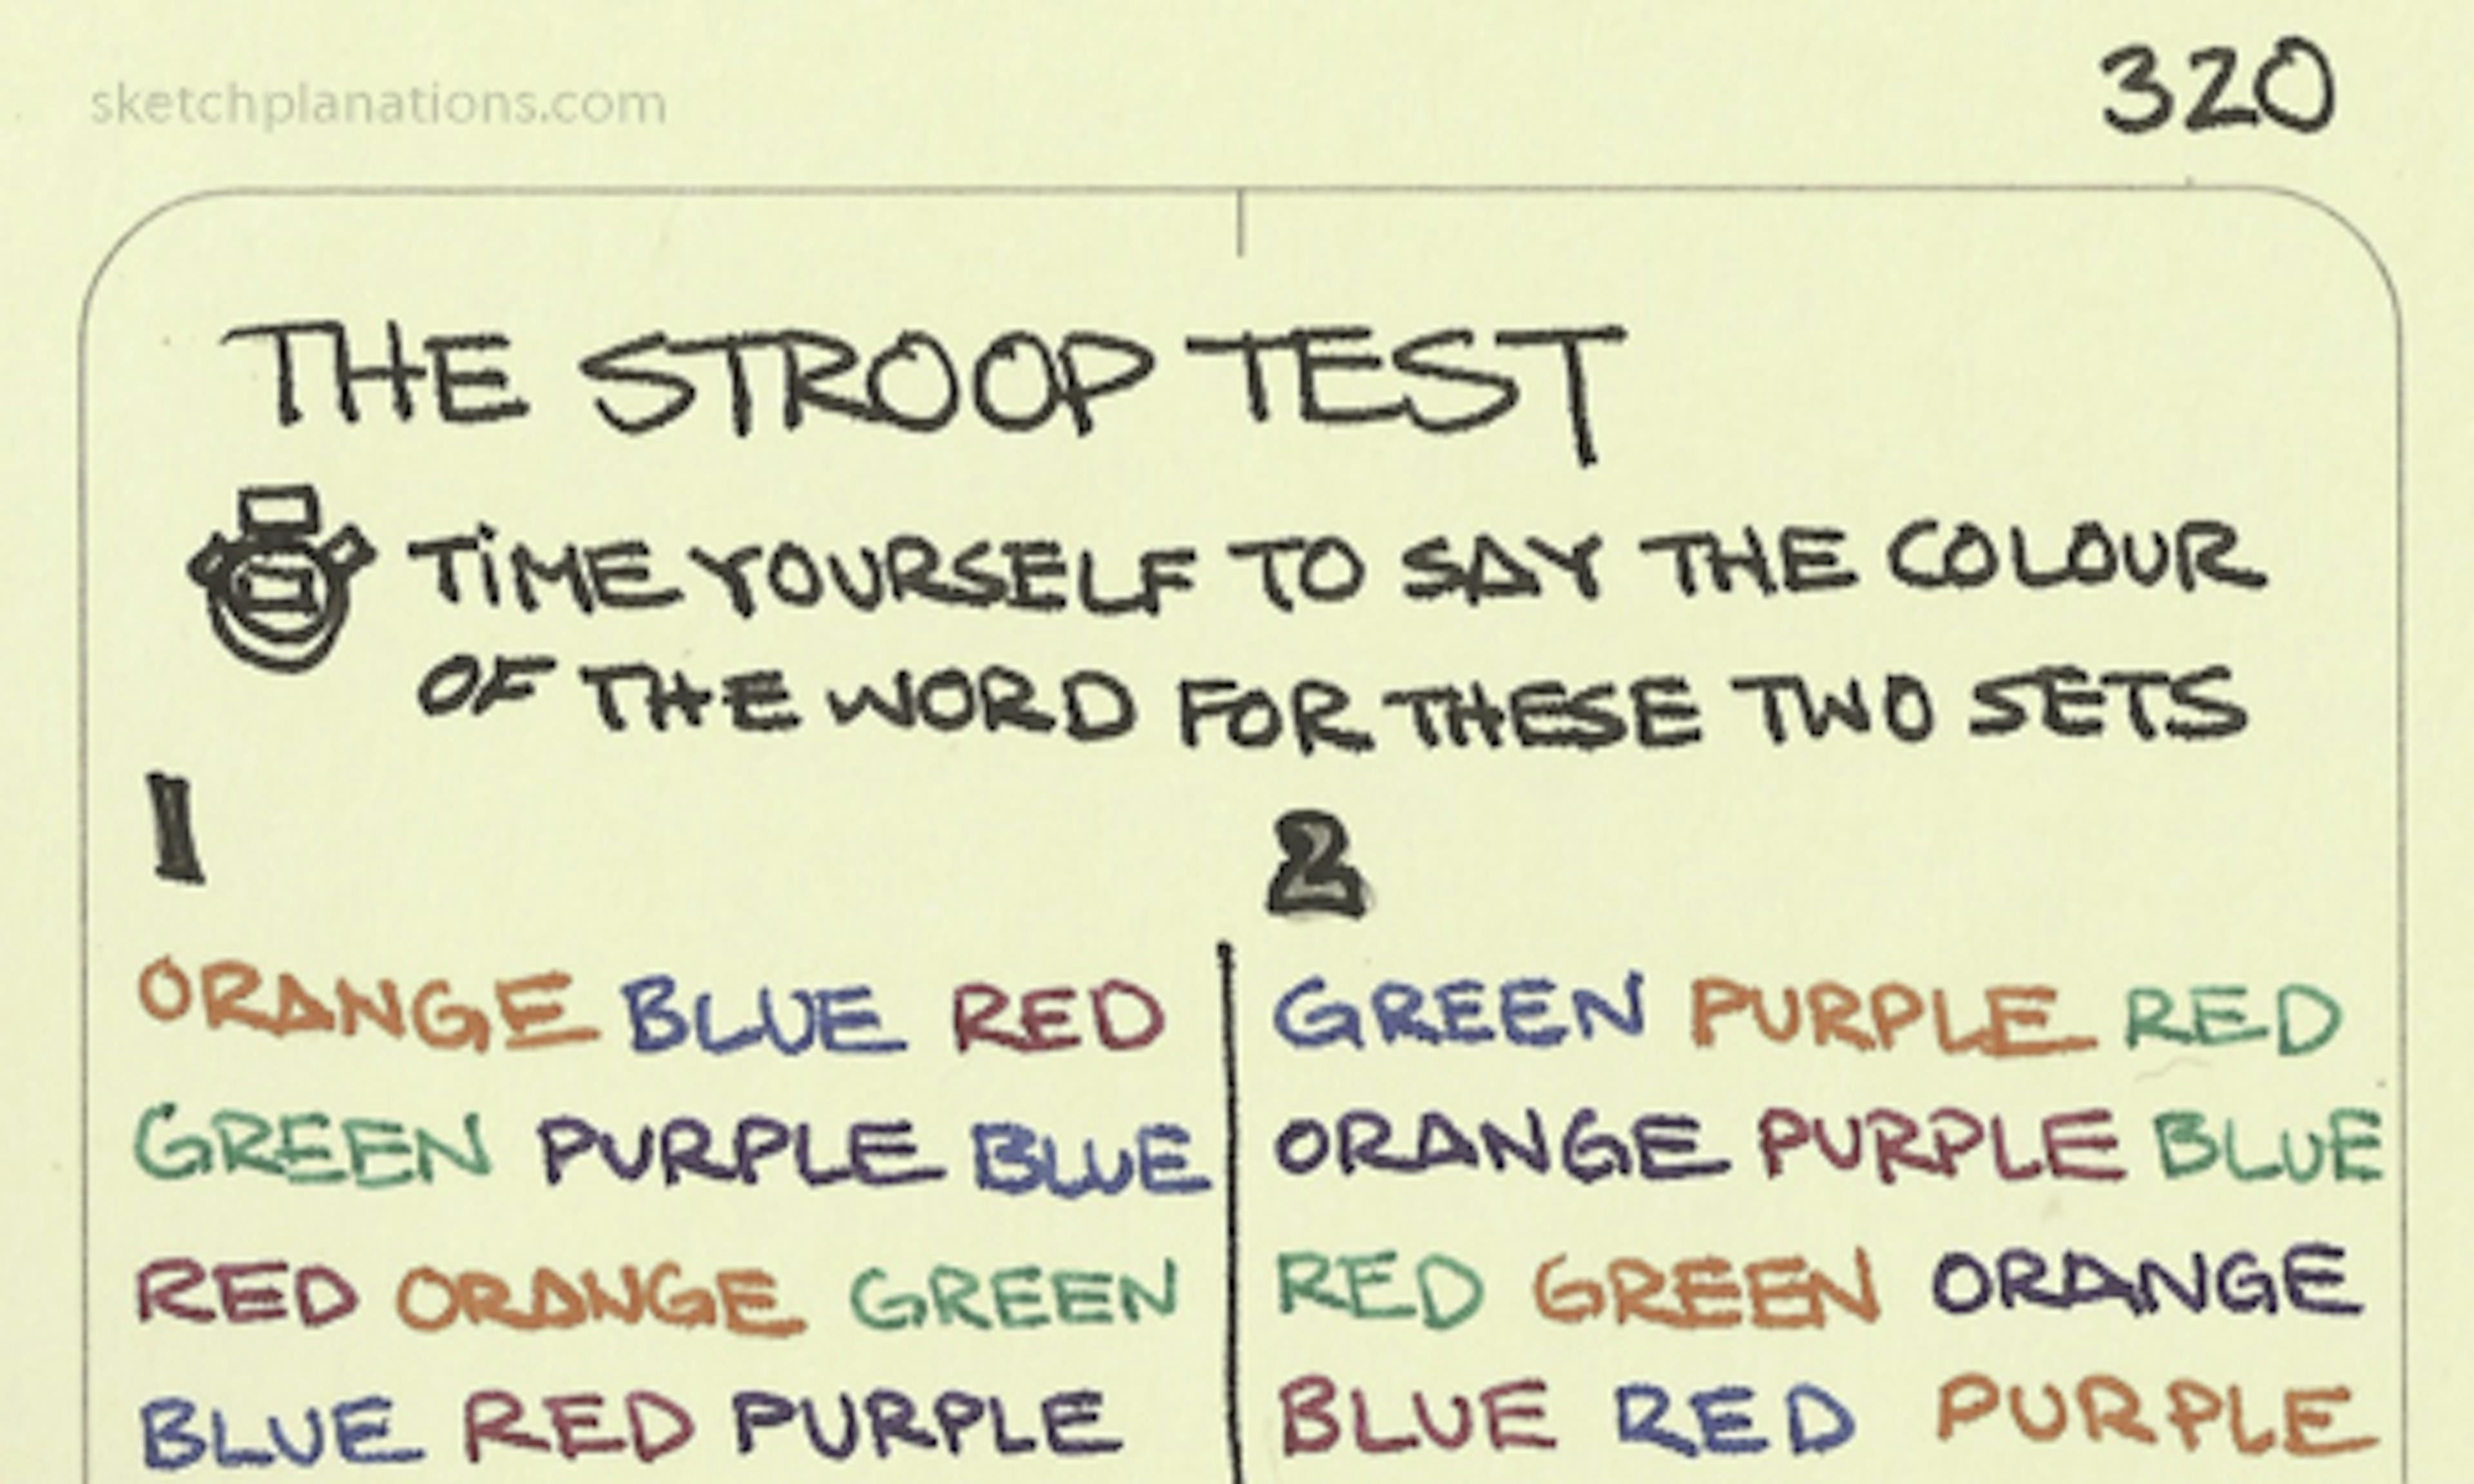 sketchplanations.com
320
THE STROOP TEST
TIME YOURSELF TO SAY THE COLOUR
OF THE WORD FOR THESE TWO SETS
1
ORANGE BLUE RED
GREEN PURPLE BLUE
RED ORANGE GREEN
BLUE RED PURPLE
2
GREEN PURPLE RED
ORANGE PURPLE BLUE
RED GREEN ORANGE
BLUE RED PURPLE